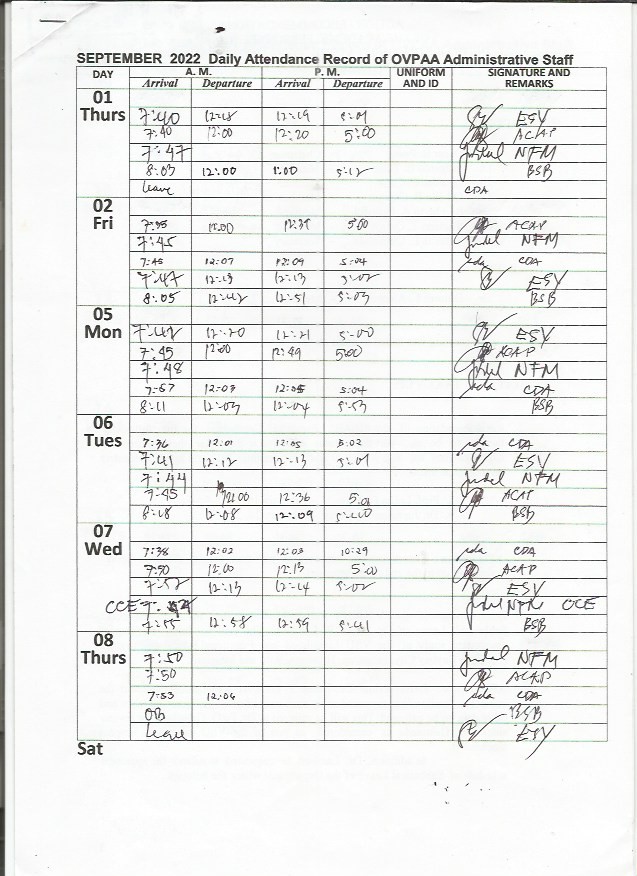 SEPTEMBER 2022 Daily Attendance Record of OVPAA Administrative Staff
DAY A. M. P. M. UNIFORM AND ID SIGNATURE AND REMARKS
Arrival Departure Arrival Departure
01
Thurs
7:40 12:18 12:19 5:01 ESY
7:40 12:00 12:20 5:00 ACAP
7:47 NFM
8:03 12:00 1:00 5:12 BSB
leave CDA
02
Fri
7:35 12:00 5:00 ACAP
7:45 NFM
7:45 12:07 12:09 5:04 CDA
7:47 12:13 12:13 5:02 ESY
8:05 12:42 12:51 5:03 BSB
05
Mon
7:42 12:20 12:21 5:00 ESY
7:45 12:00 12:49 5:00 ACAP
7:48 NFM
7:57 12:03 12:05 5:04 CDA
8:11 12:03 12:04 5:53 BSB
06
Tues
7:36 12:01 12:05 5:02 CDA
7:41 12:12 12:13 5:01 ESY
7:44 NFM
7:45 12:00 12:36 5:01 ACAP
8:18 12:08 12:09 BSB
07
Wed
7:38 12:02 12:03 10:29 CDA
7:50 12:00 12:15 5:00 ACAP
7:52 12:13 12:14 5:02 ESY
CCE NFM CCE
7:55 12:58 12:59 5:41 BSB
08
Thurs
7:50 NFM
7:50 ACAP
7:53 12:04 CDA
OB BSB
Leave ESY
Sat